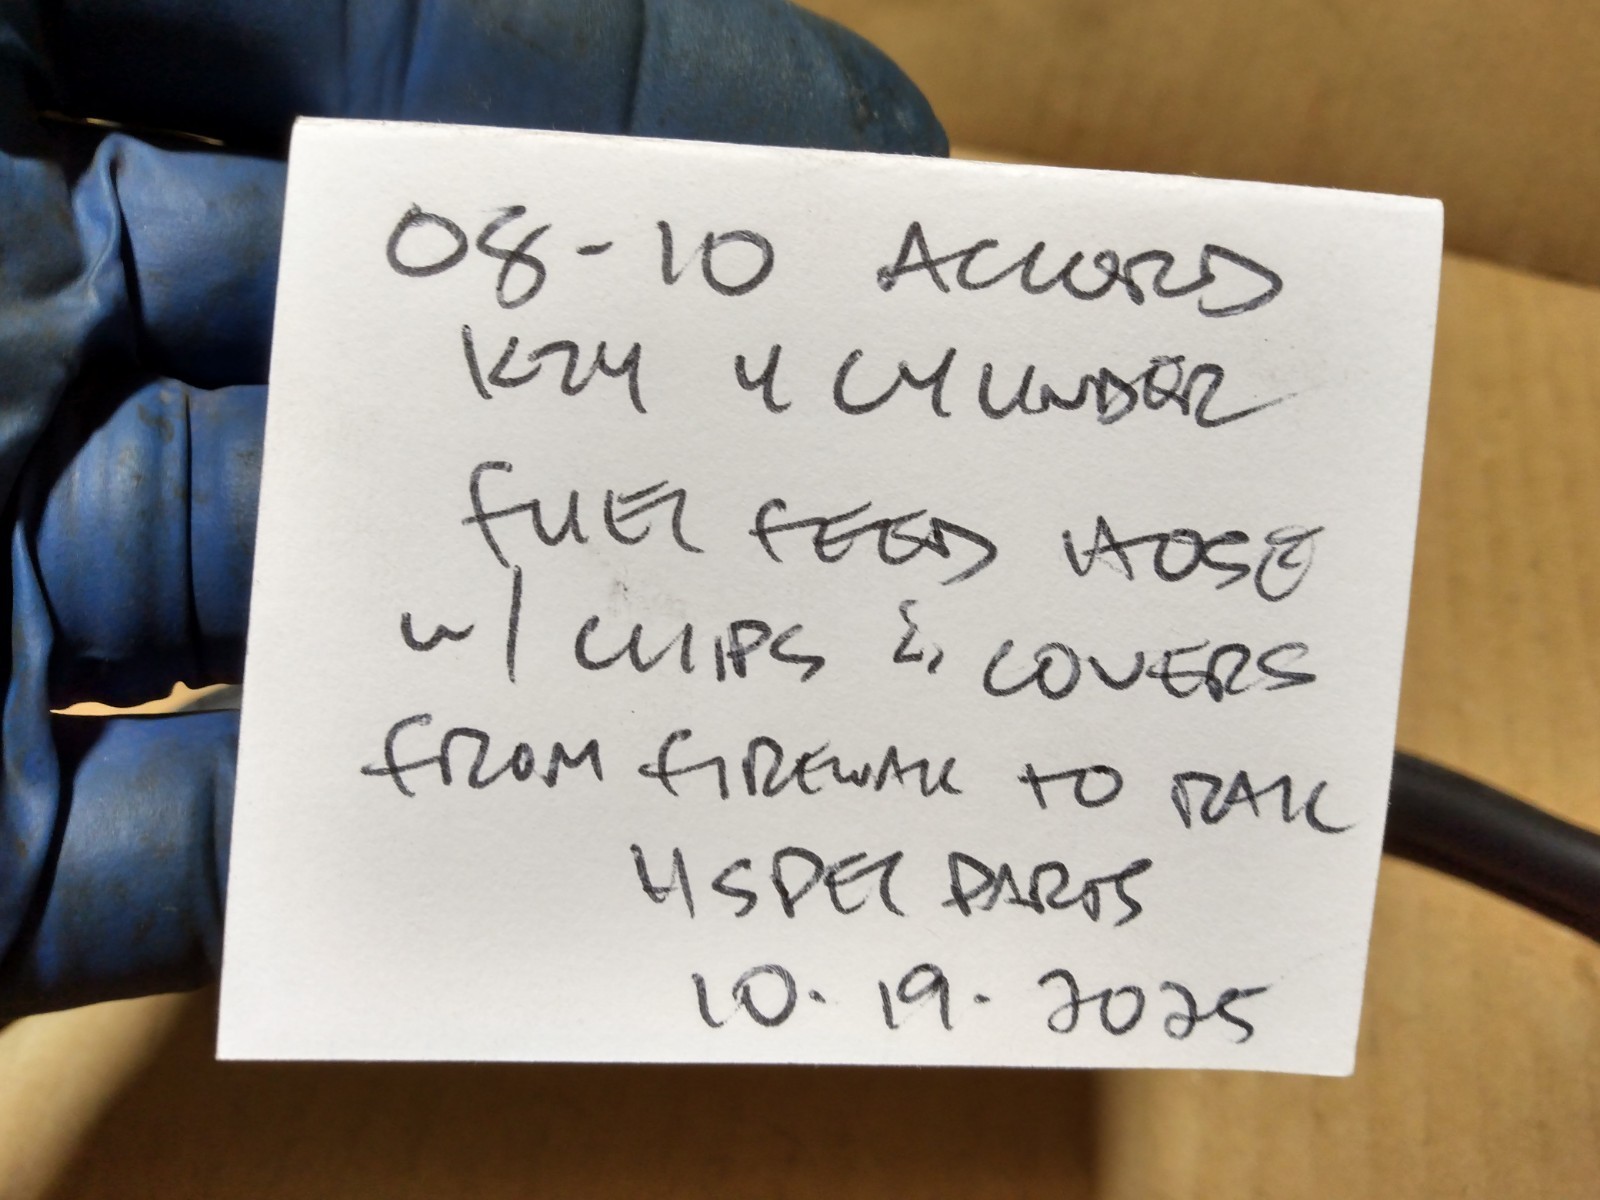 08-10 ACCORD
K24 4 CYLINDER
FUEL FEED HOSE
W/ CLIPS & COVERS
FROM FIREWALL TO RAIL
4SPEC PARTS
10.19.2025